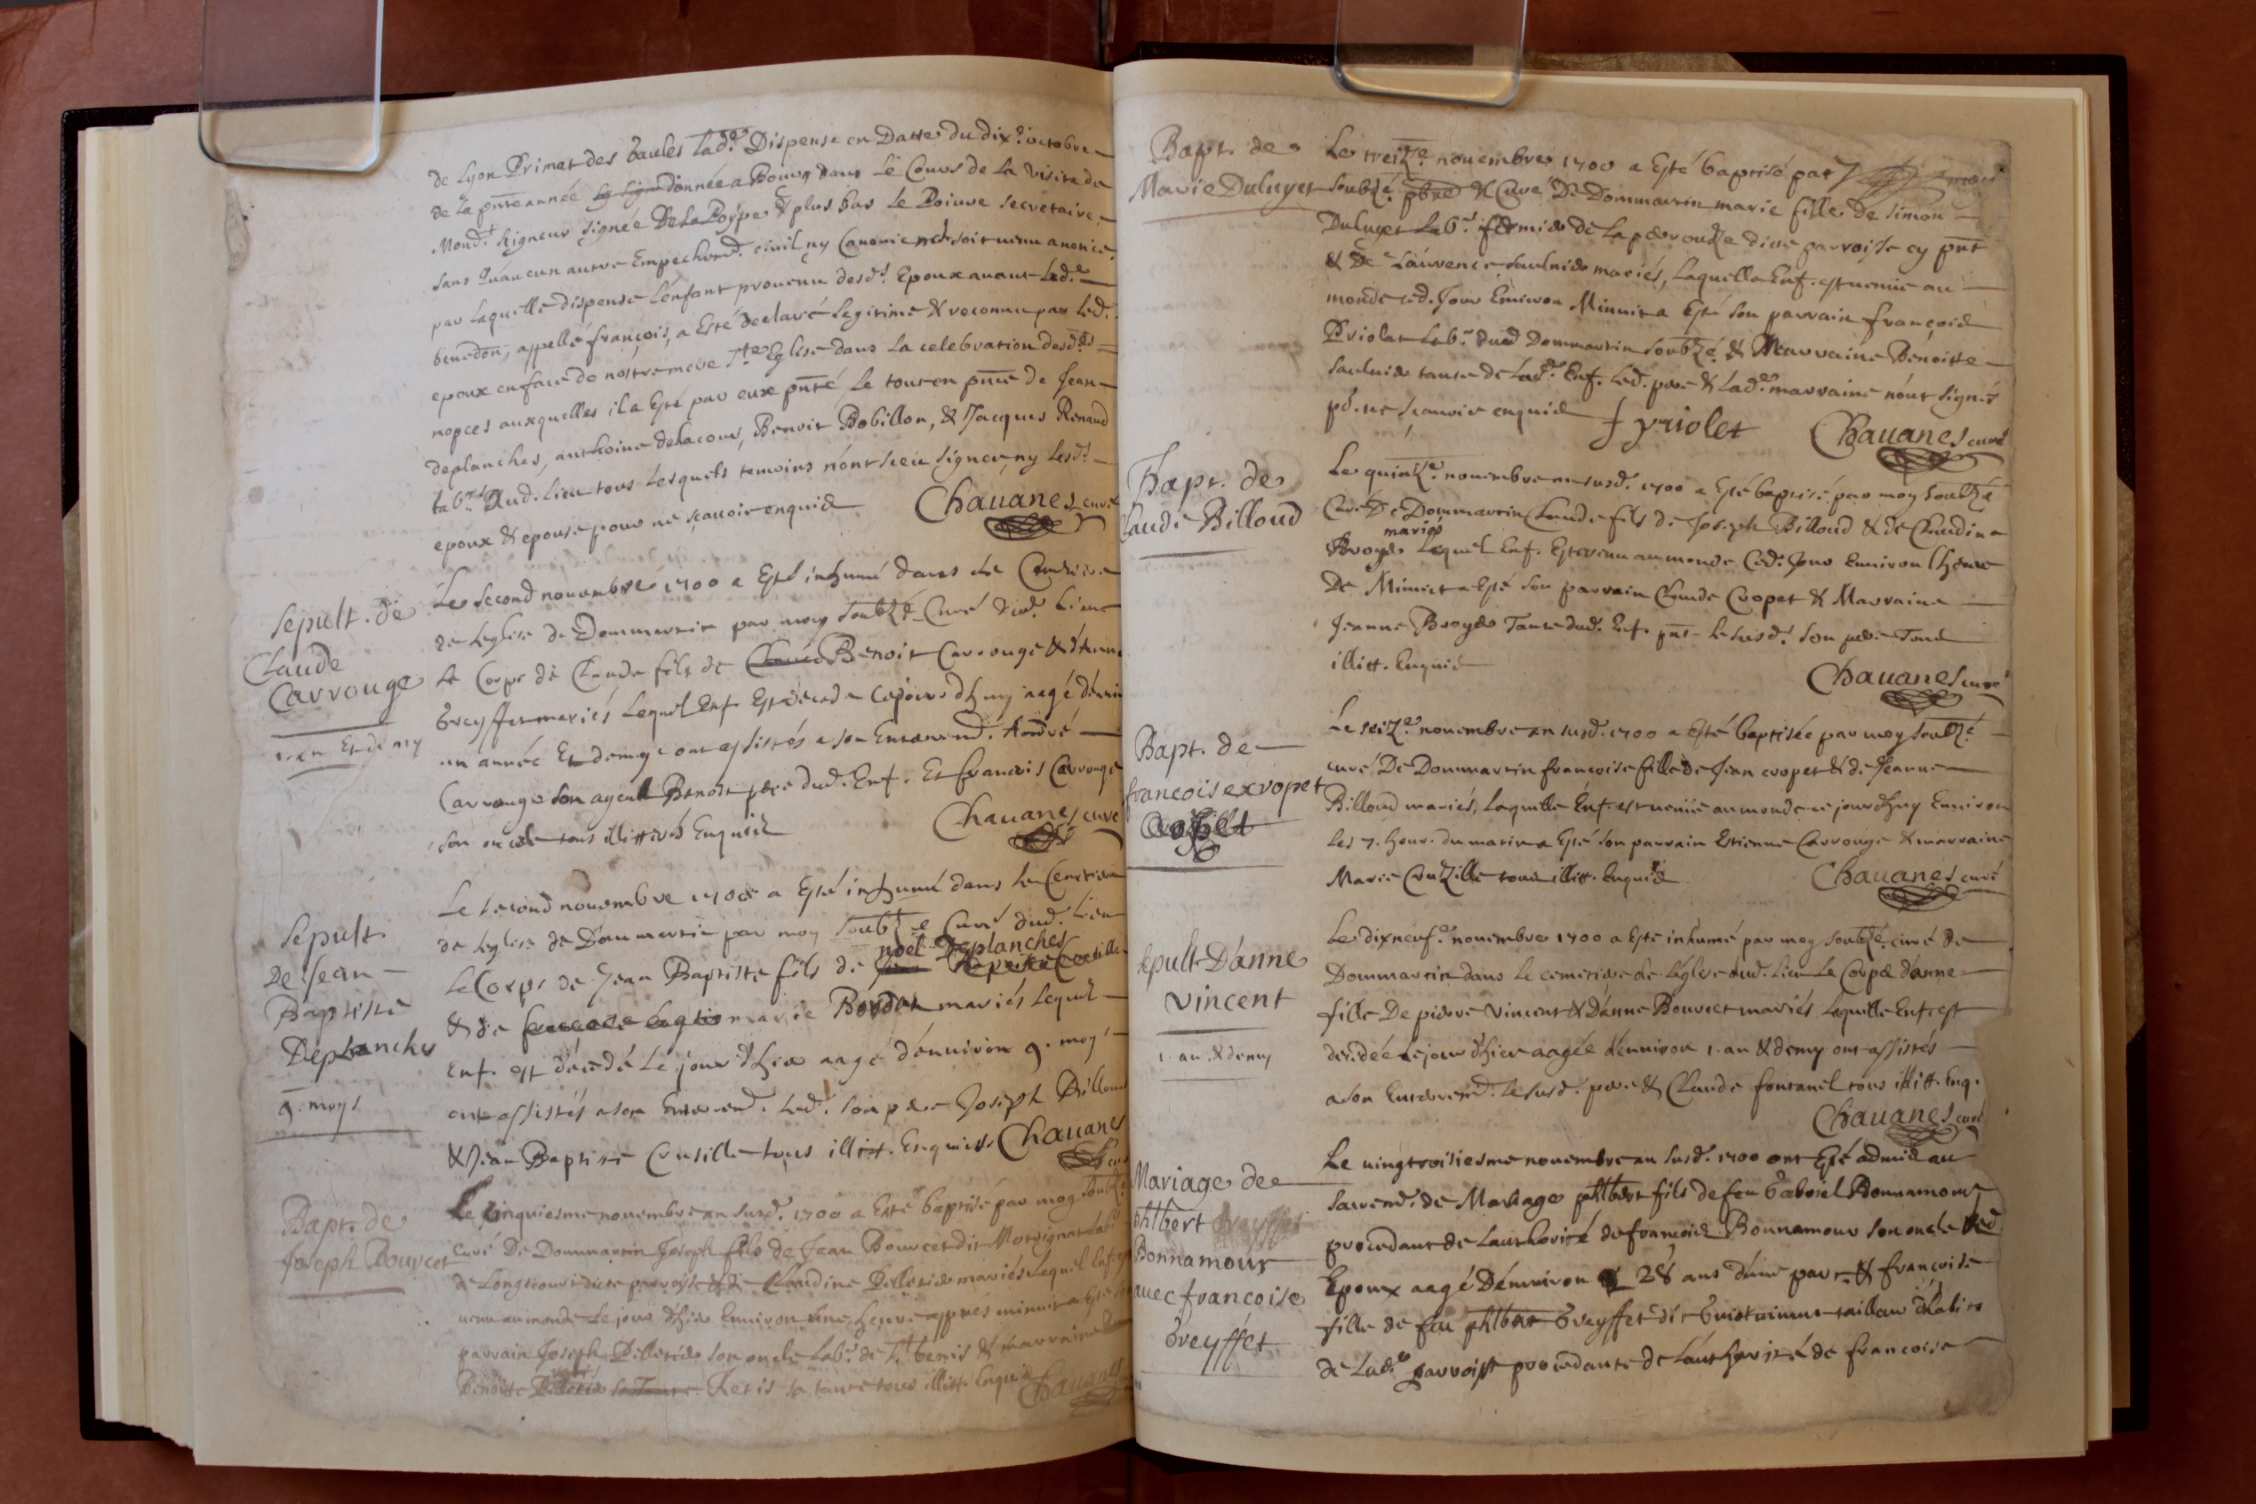 de Lyon Primat des Gaules lad.e Dispense en Datte du dix.e octobre
de la pnte année donnée a Bourg dans Le Cours de la visite de
Mond.t Seigneur signée De La Poype & plus bas Le Poivre secretaire,
sans qu'aucun autre Empechem.t civil ny Canonic soit venu a notice,
par laquelle dispense L'enfant provenu desd.s Epoux avant Lad.e
appellé françois, a Esté declaré Legitime & reconnu par Led.
epoux en face de nostre mere S.te Eglise dans la celebration desd.es
nopces auxquelles il a Esté par eux pnté Le tout en pnce de Jean
deplanches, anthoine delacour, Benoit Bobillon, & Jacques Renaud
Lab.rs Dud. Lieu tous Lesquels temoins n'ont sceu signer, ny Lesd.s
epoux & epouse pour ne sçavoir enquis
Chauanes curé
Sepult. de
Claude
Carrouge
1. an Et demy
Le second nouembre 1700 a Esté inhumé dans Le Cemetiere
de Leglise de Dommartin par moy soubzé Curé dud. Lieu
Le Corps de Claude fils de Benoit Carrouge & d'Anne
Greyffet mariés Lequel Enf. Est decedé ce jourd'huy aagé d'envir
un année Et demye ont assistés a son Enterrem.t André
Carrouge son ayeul Benoit pere dud. Enf. Et francois Carrouge
son oncle tous illitterés Enquis
Chauanes curé
Sepult.
De Jean
Baptiste
Deplanches
9. moys
Le second nouembre 1700 a Esté inhumé dans Le Cemetiere
de Leglise de Dommartin par moy soubzé Curé dud. Lieu
noel Deplanches
Le Corps de Jean Baptiste fils de
& de marie Bordat mariés Lequel
Enf. est décédé Le jour d'hier aagé d'enuiron 9. moys
ont assistés a son Enterrem.t Led. son pere Joseph Billoud
& Jean Baptiste Crusille tous illitt. Enquis Chauanes
curé
Bapt. de
Joseph Bouvcet
Le cinquiesme nouembre an susd. 1700 a Esté baptisé par moy soubzé
curé De Dommartin Joseph fils de Jean Bouvcet dit
de dicte parroisse & de Claudine mariés Lequel Enf. est
venu au monde Le jour d'hier Enuiron une heure appres minuit a Esté son
parrain Joseph son oncle Lab.r de S.t benis & marraine
Benoite sa tante tous illitt. Enquis Chauanes
Bapt. de
Marie Duluyet
Le treiz.e nouembre 1700 a Esté baptisé par
soubzé. pbre & Curé De Dommartin marie fille de simon
Duluyet Lab.r fermier de La dite parroisse cy pnt
& De Laurence saulnier mariés, Laquelle Enf. est venue au
monde ced. Jour Enuiron Minuit a Esté son parrain françois
Priolat Lab.r dud Dommartin soubzé & Marraine Benoitte
saulnier tante de lad.e Enf. Led. pere & Lad.e marraine n'ont signés
po.r ne sçauoir enquis f priolet Chauanes curé
Bapt. de
Claude Billoud
Le quinz.e nouembre an susd. 1700 a Esté baptisé par moy soubzé
Curé De Dommartin Claude fils de Joseph Billoud & de Claudine
mariés
Broyer Lequel Enf. Est venu au monde Ced. Jour Enuiron Lheure
De Minuict a Esté son parrain Claude Cropet & Marraine
Jeanne Broyer Tante dud. Enf. pnt Le susd. son pere Tous
illitt. Enquis
Chauanes curé
Bapt. de
francoise cropet
Le seiz.e nouembre an susd. 1700 a Esté baptisée par moy soubzé
curé De Dommartin francoise fille de Jean cropet & de Jeanne
Billoud mariés, Laquelle Enf. est venue au monde ce jourd'huy Enuiron
Les 7. heur. du matin a Esté son parrain Estienne Carrouge & marraine
Marie Cruzille tous illitt. Enquis
Chauanes curé
Sepult D'anne
vincent
1. an & demy
Le dixneuf.e nouembre 1700 a Esté inhumé par moy soubzé. curé de
Dommartin dans Le cemetiere de L'église dud. Lieu Le Corps d'anne
fille De pierre Vincent & D'anne Bouvcet mariés Laquelle Enf. est
decedée Le jour d'hier aagée d'enuiron 1. an & demy ont assistés
a son Enterrem.t Le susd. pere & Claude fontanel tous illitt. Enq.
Chauanes curé
Mariage de
phlbert
Bonnamour
avec francoise
Greyffet
Le uingtroisiesme nouembre an susd. 1700 ont Esté admis au
sacrem.t de Mariage phlbert fils de feu Gabriel Bonnamour
procedant de Lauthorité de francois Bonnamour son oncle Led.
Epoux aagé D'enuiron 28 ans d'une part & francoise
fille de feu phlbert Greyffet dit tailleur d'habits
de Lad.e parroisse procedante de L'authorité de francoise